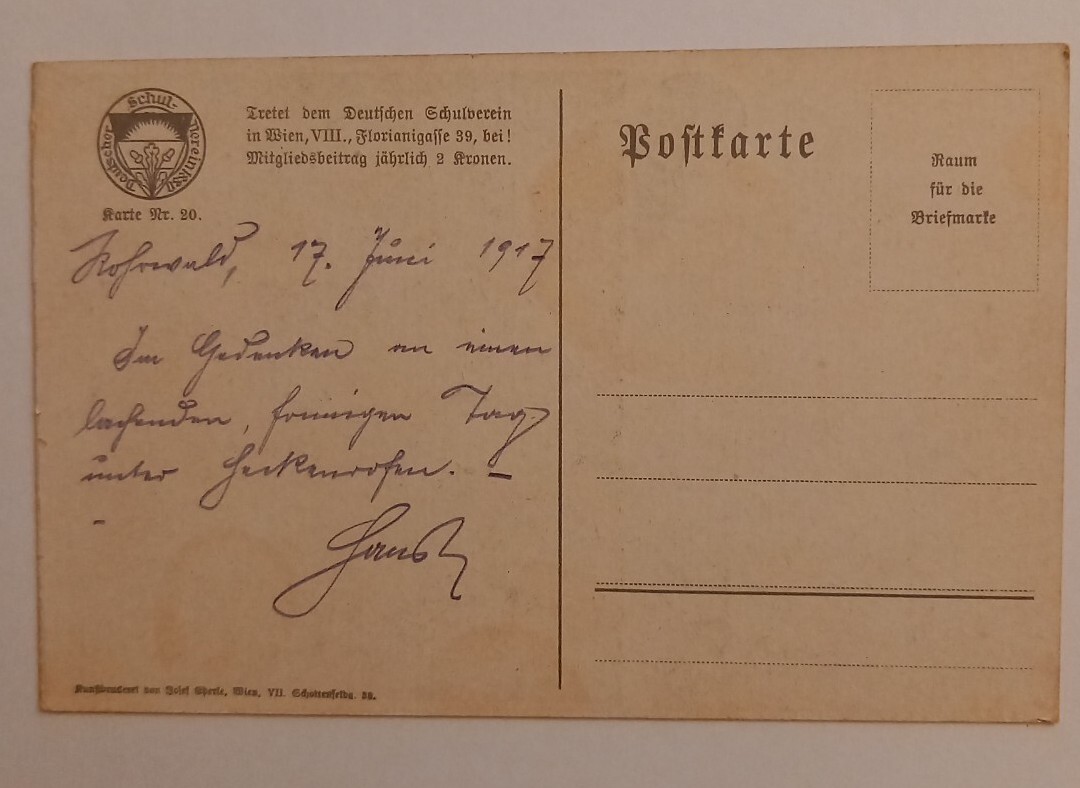 Deutscher Schul-Verein 1880
Tretet dem Deutschen Schulverein
in Wien, VIII., Florianigasse 39, bei!
Mitgliedsbeitrag jährlich 2 Kronen.
Karte Nr. 20.
Rohrwald, 17. Juni 1917
Im Gedenken an einen
lachenden, sonnigen Tag
unter Heckenrosen. –
–
Hans
Kunstdruckerei von Josef Eberle, Wien, VII. Schottenfeldg. 38.
Postkarte
Raum
für die
Briefmarke